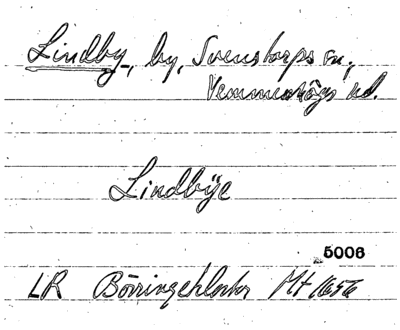 Lindby, by, Svenstorps sn,
Vemmenhögs hd.
Lindbÿe
5006
LR Börringekloster Mt 1656